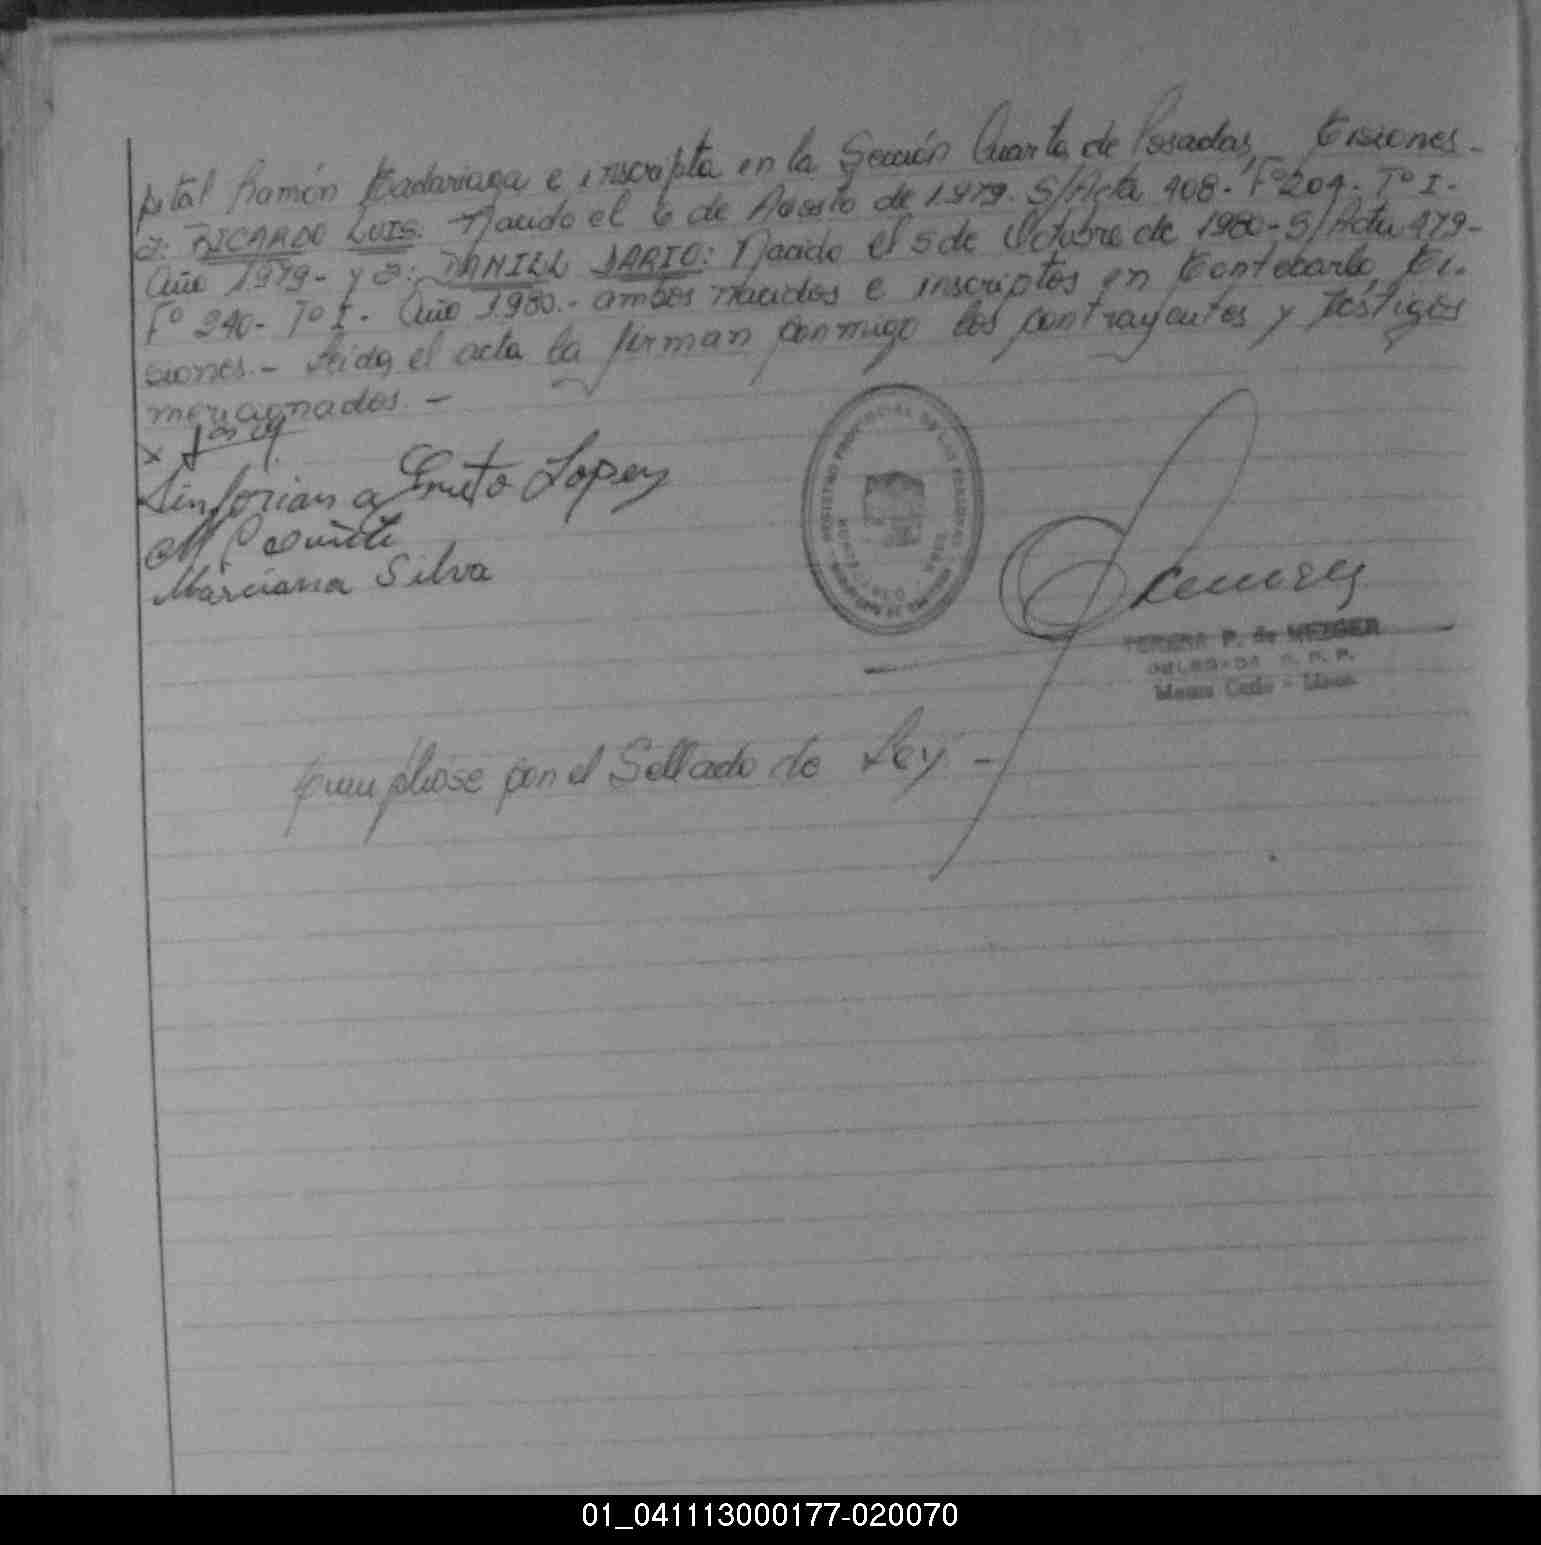 pital Ramón Madariaga e inscripta en la Sección Cuarta de Posadas, Misiones.-
2: RICARDO LUIS: Nacido el 6 de Agosto de 1979. S/Acta 408. F° 204. T° I.
Año 1979.- y 3: DANIEL DARIO: Nacido el 5 de Octubre de 1980- S/Acta 479-
F° 240- T° I. Año 1980.- ambos nacidos e inscriptos en Montecarlo, Mi-
siones.- Leida el acta la firman conmigo los contrayentes y testigos
mencionados.-
Sinforiana Lopez
Marciana Silva
REGISTRO PROVINCIAL DE LAS PERSONAS
TERESA P. de MEZGER
DELEGADA R. P. P.
Monte Carlo - Mnes.
Cumpliose con el Sellado de Ley -
01_041113000177-020070